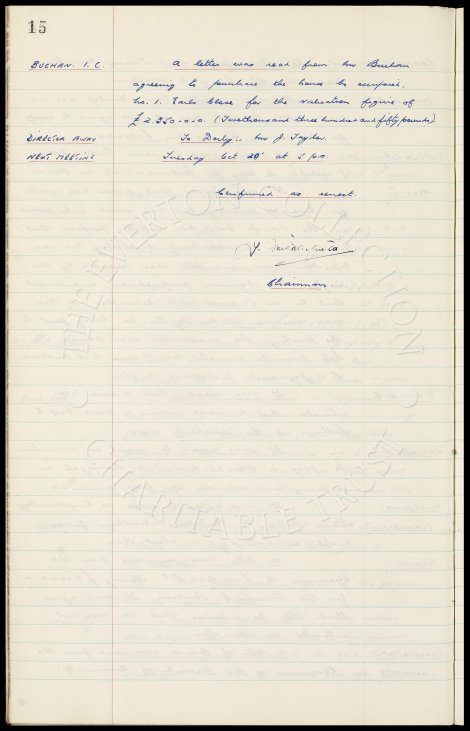 15
BUCHAN. I. C. A letter was read from Mr Buchan
agreeing to purchase the house he occupied,
No. 1. Earls Close for the valuation figure of
£2.350-0-0. (Two thousand three hundred and fifty pounds)
DIRECTOR AWAY To Derby:- Mr J. Taylor.
NEXT MEETING Tuesday Oct 29th at 5 pm
Confirmed as correct.
Chairman.
© THE EVERTON COLLECTION
CHARITABLE TRUST ©